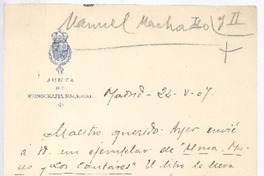 Manuel Machado y II
JUNTA
DE
ICONOGRAFIA NACIONAL
Madrid - 22 - V - 07.
Maestro querido: Ayer envié
á V. un ejemplar de "Alma, Mu-
seo y Los Cantares" El libro le lleva